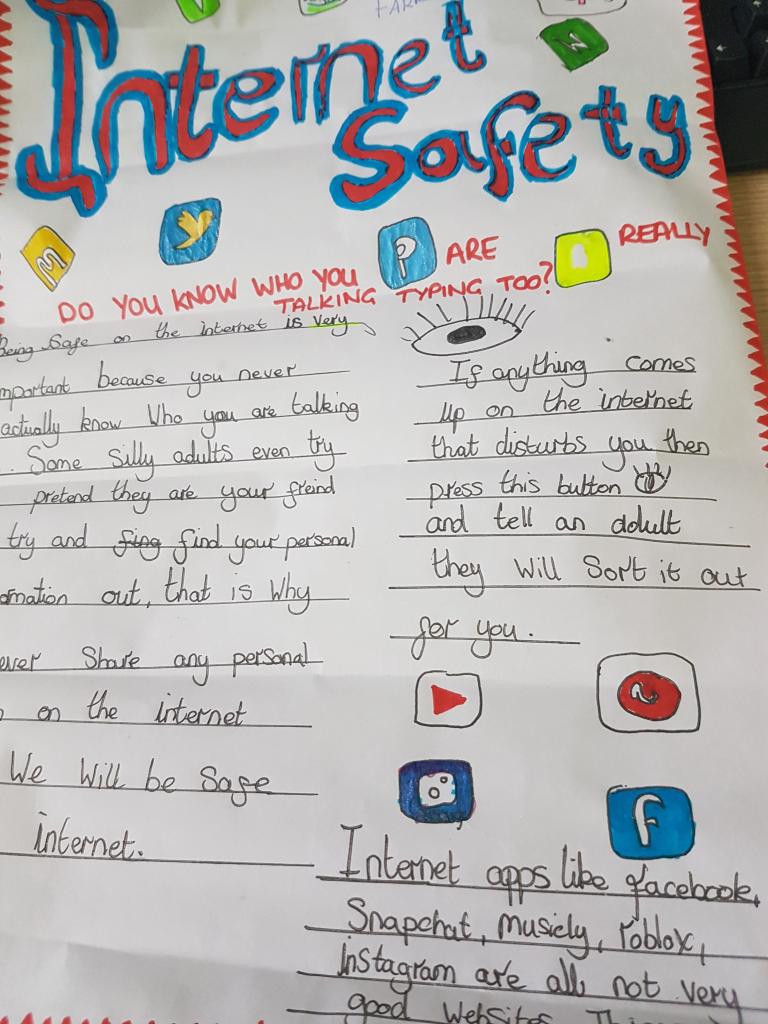 Internet
Safety
DO YOU KNOW WHO YOU ARE REALLY
TALKING TYPING TOO?
Being Safe on the internet is very
important because you never
actually know Who you are talking
Some Silly adults even try
pretend they are your freind
try and find your personal
ormation out, that is Why
ever Share any personal
on the internet
We Will be Safe
internet.
If anything comes
up on the internet
that disturbs you then
press this button
and tell an adult
they Will Sort it out
for you.
Internet apps like facebook,
Snapchat, musicly, roblox,
instagram are all not very
good websites